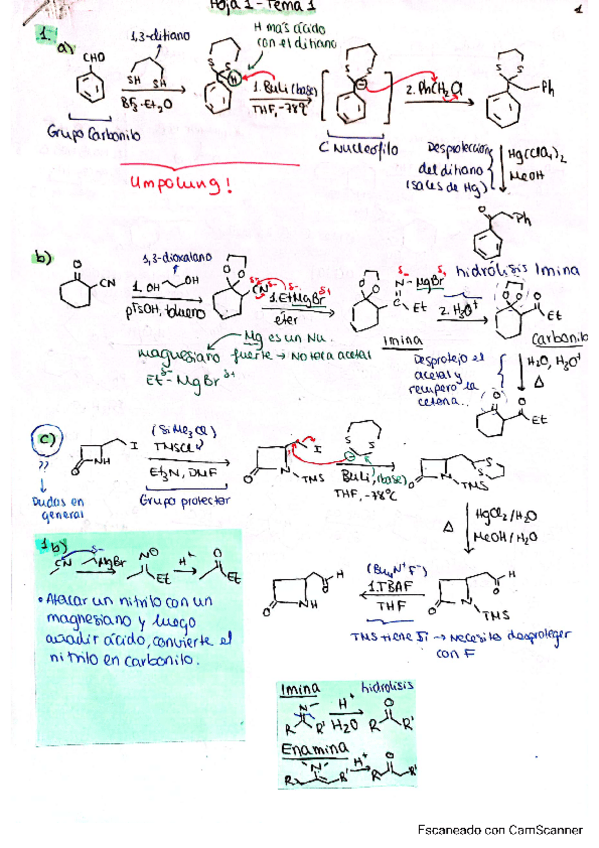 Hoja 1 - Tema 1
1
1.
a)
CHO
1,3-ditiano
SH SH
BF3·Et2O
Grupo Carbonilo
H más ácido
con el ditiano
S S
H
1. BuLi (base)
THF, -78ºC
S S
C Nucleófilo
2. PhCH2Cl
S S
Ph
Umpolung!
Desprotección
del ditiano
(sales de Hg)
Hg(ClO4)2
MeOH
O
Ph
b)
O
CN
1,3-dioxolano
1. OH OH
pTsOH, tolueno
O O
CN
δ+ δ-
1. EtMgBr
δ- δ+
éter
O O
N-MgBr
δ- δ+
C
Et
Imina
hidrólisis Imina
2. H3O+
O O
O
Et
Carbonilo
Mg es un Nu.
magnesiano fuerte → No toca acetal
Et-MgBr
δ- δ+
Desprotejo el
acetal y
recupero la
cetona...
H2O, H3O+
Δ
O O
Et
c)
??
Dudas en
general
O
NH
I
(SiMe3Cl)
TMSCl
Et3N, DMF
Grupo protector
O
N
TMS
I
S S
BuLi, (base)
THF, -78ºC
O
N
TMS
S
S
Δ
HgCl2/H2O
MeOH/H2O
1b)
CN
δ-
MgBr
N
Et
H+
O
Et
• Atacar un nitrilo con un
magnesiano y luego
añadir ácido, convierte el
nitrilo en carbonilo.
O
NH
O
H
(Bu4N+F-)
1. TBAF
THF
O
N
TMS
O
H
TMS tiene Si → Necesito desproteger
con F
Imina
hidrólisis
N
R R'
H+
H2O
O
R R'
Enamina
N
R R'
H+
O
R R'
Escaneado con CamScanner